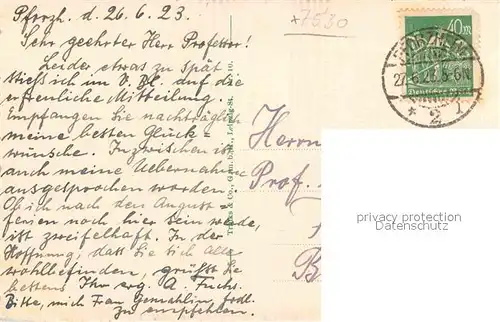 Pforzh. d. 26.6.23.
Sehr geehrter Herr Professor!
Leider etwas zu spät
stieß ich im V. Bl. auf die
erfreuliche Mitteilung.
Empfangen Sie nachträglich
meine besten Glück
wünsche. Inzwischen ist
auch meine Uebernahme
ausgesprochen worden.
Ob ich nach den August=
ferien noch hier sein werde,
ist zweifelhaft. In der
Hoffnung, dass Sie sich alle
wohlbefinden, grüßt Sie
bestens Ihr erg. A. Fuchs.
Bitte, mich Frau Gemahlin, frdl.
zu empfehlen.
*7530
& Co., G.m.b.H., Leipzig
Herrn
Prof.
B
40 m
Deutsches Reich
PFORZHEIM
27.6.23. 5-6N
* 2
privacy protection
Datenschutz